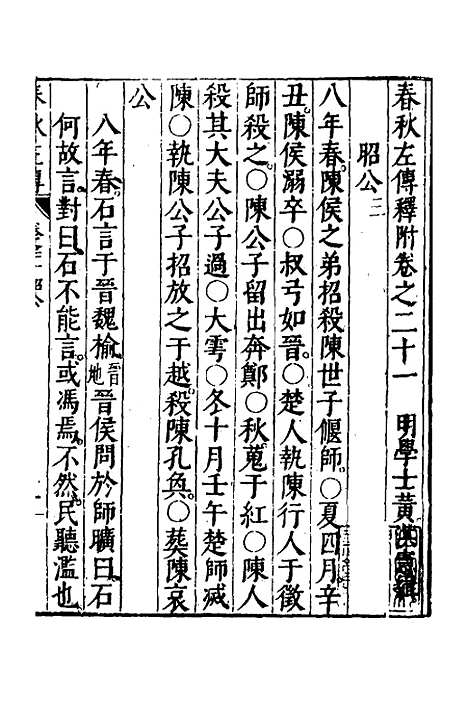 春秋左傳釋附卷之二十一　明學士黃洪憲輯
昭公三
八年春陳侯之弟招殺陳世子偃師〇夏四月辛
丑陳侯溺卒〇叔弓如晉〇楚人執陳行人于徵
師殺之〇陳公子留出奔鄭〇秋蒐于紅〇陳人
殺其大夫公子過〇大雩〇冬十月壬午楚師滅
陳〇執陳公子招放之于越殺陳孔奐〇葬陳哀
公
八年春石言于晉魏榆晉地晉侯問於師曠曰石
何故言對曰石不能言或馮焉不然民聽濫也
春秋左傳